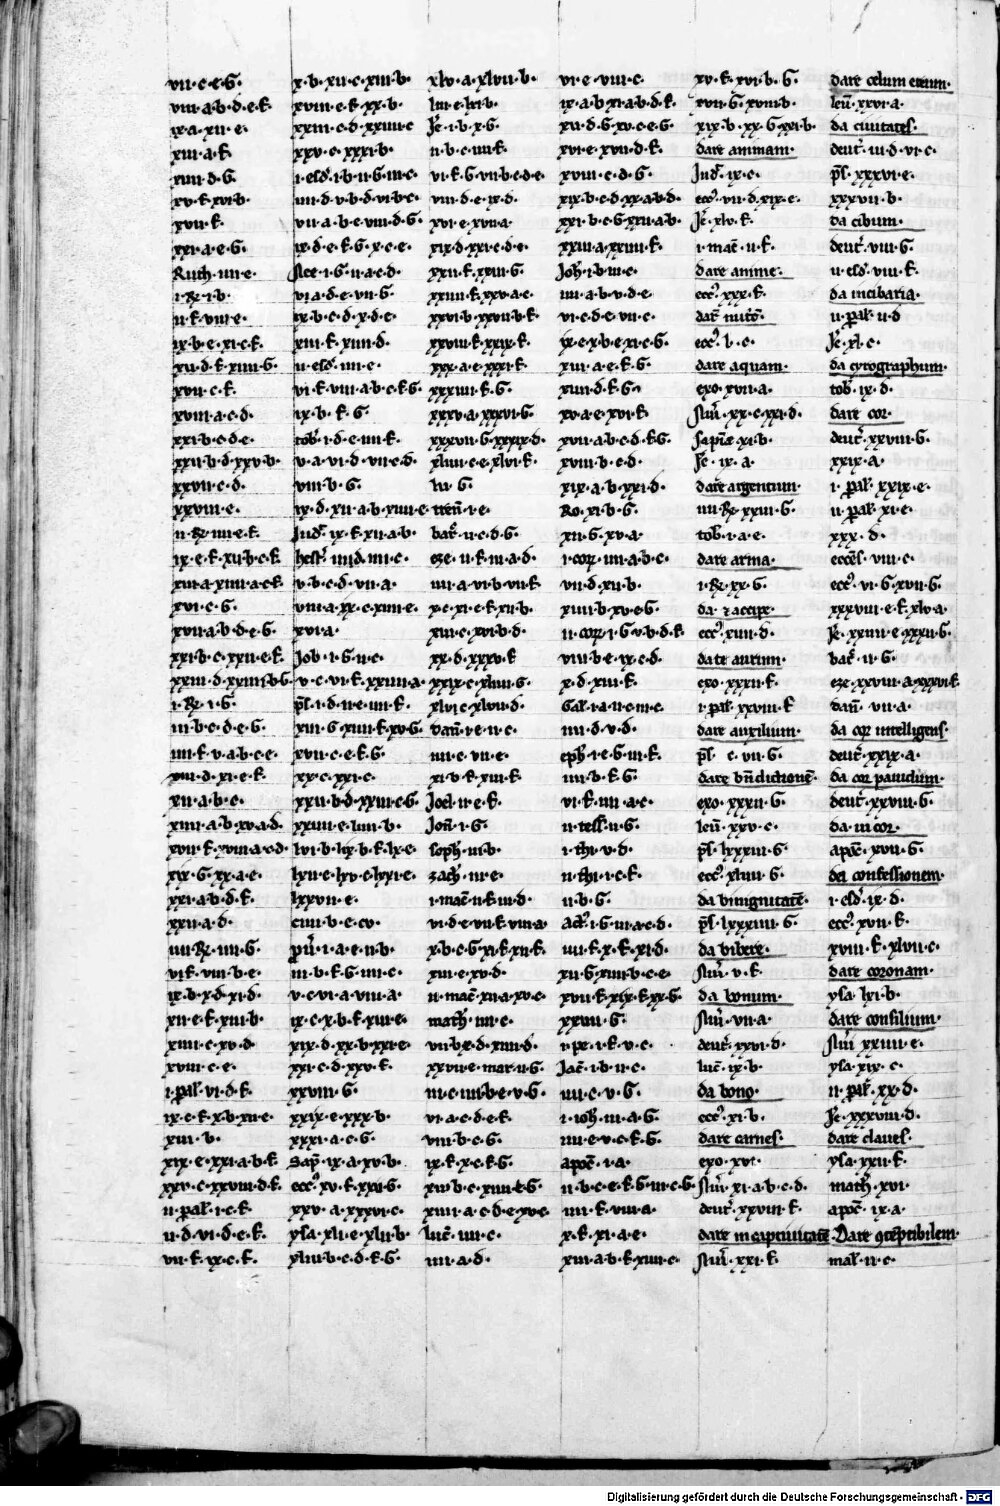 vii·c·e·G·
viii·a·b·d·e·f·
ix·a·xii·e·
xiii·a·f·
xiiii·d·G·
xv·f·xvi·b·
xvii·f·
xxi·a·e·G·
Ruth·iiii·e·
i·Re·i·b·
ii·f·viii·e·
ix·b·e·xi·c·f·
xii·d·f·xiiii·G·
xvii·c·f·
xviii·a·c·d·
xxi·b·c·d·e·
xxii·b·d·xxv·b·
xxvii·c·d·
xxviii·e·
ii·Re·iiii·e·f·
ix·e·f·xii·b·c·f·
xiii·a·xiiii·a·c·f·
xvi·c·G·
xvii·a·b·d·e·G·
xxi·b·c·xxii·e·f·
i·Re·i·G·
iii·b·c·d·e·G·
iiii·f·v·a·b·c·e·
viii·d·xi·e·f·
xii·a·b·c·
xiiii·a·b·xv·a·d·
xvii·f·xviii·a·c·d·
xix·G·xx·a·e·
xxi·a·b·d·f·
xxii·a·d·
iiii·Re·iiii·G·
vi·f·viii·b·e·
ix·b·x·d·xi·d·
xii·e·f·xiii·b·
xiiii·c·xv·d·
xviii·c·e·
i·pal·vi·d·f·
ix·c·f·x·b·xii·e·
xiii·b·
xix·e·xxi·a·b·f·
xxv·c·xxviii·d·f·
ii·pal·i·c·f·
ii·d·vi·d·e·f·
vii·f·ix·c·f·
x·b·xii·c·xiii·b·
xviii·e·f·xx·b·
xxiii·c·d·xxiiii·c
xxv·c·xxxi·b·
i·esd·i·b·ii·G·iii·c·
iiii·d·v·b·d·vi·b·c·
vii·a·b·e·viii·d·G·
ix·d·e·f·G·x·c·e·
vi·a·d·e·vii·G·
ix·b·c·d·x·d·e·
xiii·f·xiiii·d·
ii·esd·iiii·e·
vi·f·viii·a·b·c·f·G·
ix·b·f·G·
tob·i·d·e·iiii·f·
v·a·vi·d·vii·c·d·
viii·b·G·
ix·d·xii·a·b·xiiii·e·
Jud·ix·f·xii·a·b·
v·b·c·d·vii·a·
viii·a·xx·c·xiiii·e·
xvi·a·
Job·i·G·ii·c·
v·c·vi·f·xxiiii·a·
ps·i·d·ii·e·iiii·f·
xiii·G·xiiii·f·xv·G·
xvii·c·e·f·G·
xx·c·xxi·c·
xxii·b·d·xxiii·c·G·
xxiiii·e·liiii·b·
lvi·b·lix·b·f·lx·c·
lxii·e·lxv·c·lxxi·e·
lxxvii·e·
ciiii·b·e·cv·
iii·b·f·G·iiii·c·
v·c·vi·a·viii·a·
ix·c·x·b·f·xiii·e·
xix·d·xx·b·xxi·e·
xxi·c·d·xxv·f·
xxviii·G·
xxix·e·xxx·b·
xxxi·a·c·G·
Sap·ix·a·xv·b·
ecc·xv·f·xxvi·G·
xxv·a·xxxvi·c·
ysa·xli·e·xlii·b·
xliii·b·c·d·f·G·
xlv·a·xlvii·b·
liii·e·lxi·b·
Je·i·b·x·G·
ii·b·c·iiii·f·
vi·f·G·vii·b·c·d·e·
viii·d·e·ix·d·
xvi·e·xvii·a·
xix·d·xxi·c·d·e·
xxii·f·xxiii·G·
xxiiii·f·xxv·a·c·
xxvi·b·xxvii·b·f·
xxviii·f·xxix·f·
xxx·a·e·xxxi·f·
xxxiiii·f·G·
xxxv·a·xxxvi·G·
xxxvii·G·xxxix·d·
xliiii·c·e·xlvi·f·
lii·G·
tren·i·e·
bar·ii·c·d·G·
eze·ii·f·iii·a·d·
iiii·a·vi·b·vii·f·
x·c·xi·e·f·xii·b·
xiii·c·xvi·b·d·
xx·d·xxxv·f
xxxix·c·xliii·G·
xlvi·c·xlvii·d·
dan·i·e·ii·c·
iiii·c·vii·e·
xi·b·f·xiii·f·
Joel·ii·e·f·
Jon·i·G·
soph·iii·b·
zach·iii·e·
i·mac·ii·f·iii·d·
vi·d·e·vii·f·viii·a·
x·b·c·G·xi·f·xii·f·
xiii·e·xv·d·
ii·mac·xii·a·xv·c·
math·iiii·c·
vii·b·e·d·xiiii·d·
xxvii·e·mar·ii·G·
iii·c·iiii·b·e·v·G·
vi·a·c·d·e·f·
viii·b·c·G·
ix·f·x·c·f·G·
xiii·b·c·xiiii·e·G·
xiiii·a·c·d·e·xv·c·
luc·iiii·c·
iiii·a·d·
vi·e·viii·c·
ix·a·b·xi·a·b·d·f·
xii·d·G·xv·c·e·G·
xvi·e·xvii·d·f·
xviii·c·d·G·
xix·b·c·d·xx·a·b·d·
xxi·b·c·G·xxii·a·b·
xxiii·a·xxiiii·f·
Joh·i·b·iii·c·
iiii·a·b·v·d·e·
vi·c·d·e·vii·c·
ix·e·x·b·e·xi·c·G·
xii·a·e·f·G·
xiii·d·f·G·
xv·a·e·xvi·f·
xvii·a·b·c·d·f·G·
xviii·b·c·d·
xix·a·b·xxi·d·
Ro·xi·b·G·
xii·G·xv·a·
i·cor·iii·a·b·c·
vii·d·xii·b·
xiiii·b·xv·e·G·
ii·cor·i·G·v·b·d·f·
viii·b·e·ix·c·d·
x·d·xiii·f·
Gal·i·a·ii·c·iii·c·
iiii·d·v·d·
eph·i·e·G·iii·f·
iiii·b·f·G·
vi·f·iiii·a·c·
ii·tess·ii·G·
i·thi·v·d·
ii·thi·i·c·f·
ii·b·G·
Act·i·G·iii·a·c·d·
iiii·f·x·f·xi·d·
xii·G·xiii·b·c·e·
xvii·f·xix·f·xx·G·
xxvii·G·
i·pe·i·f·v·c·
Jac·i·b·ii·c·
iiii·c·v·G·
i·ioh·iii·a·G·
iiii·e·v·c·f·G·
apoc·i·a·
ii·b·c·e·f·G·iii·c·G·
iiii·f·viii·a·
x·f·xi·a·e·
xiii·a·b·f·xiiii·c·
xv·f·xvi·b·G·
xvii·G·xviii·b·
xix·b·xx·G·xxi·b·
dare animam·
Jud·ix·c·
ecc·vii·d·xix·e·
Je·xlv·f·
i·mac·ii·f·
dare anime·
ecc·xxx·f·
dar nuto·
ecc·l·c·
dare aquam·
exo·xvii·a·
Nu·xx·c·xxi·d·
Sapie·xi·b·
Je·ix·a·
dare argentum·
iiii·Re·xxiii·G·
tob·i·a·e·
dare arma·
i·Re·xx·G·
da ⁊ accipe·
ecc·xiiii·d·
date aurum·
exo·xxxii·f·
i·pal·xxviii·f
dare auxilium·
ps·c·vii·G·
dare bndictione·
exo·xxxii·G·
leu·xxv·c·
ps·lxxxiii·G·
ecc·xliiii·G·
da benignitate·
ps·lxxxiiii·G·
da bibere·
Nu·v·f·
da bonum·
Nu·vii·a·
deut·xxvi·d·
luc·ix·b·
da bono·
ecc·xi·b·
dare carnes·
exo·xvi·
Nu·xi·a·b·c·d·
deut·xxviii·f·
dare in captiuitate
Nu·xxi·f·
dare celum eneum·
leu·xxvi·a·
da ciuitates·
deut·iii·d·vi·c·
ps·xxxvi·e·
xxxvii·b·
da cibum·
deut·viii·G·
ii·esd·viii·f·
da incibaria·
ii·pal·ii·d·
Je·xl·c·
da cyrographum·
tob·ix·d·
dare cor·
deut·xxviii·G·
xxix·a·
i·pal·xxix·e·
ii·pal·xi·e·
xxx·d·
eccles·viii·c·
ecc·vi·G·xvii·G·
xxxviii·e·f·xlv·a·
Je·xxiiii·e·xxxii·G·
bar·ii·G·
eze·xxviii·a·xxxvi·f·
dan·vii·a·
da cor intelligens·
deut·xxix·a·
da cor pauidum·
deut·xxviii·G·
da in cor·
apoc·xvii·G·
da confessionem·
i·esd·ix·d·
ecc·xvii·f·
xviii·f·xlvii·c·
dare coronam·
ysa·lxi·b·
dare consilium·
Nu·xxiiii·e·
ysa·xix·c·
ii·pal·xx·d·
Je·xxxviii·d·
dare claues·
ysa·xxii·f·
math·xvi·
apoc·ix·a·
Dare 9teptibilem·
mal·ii·c·
Digitalisierung gefördert durch die Deutsche Forschungsgemeinschaft - DFG